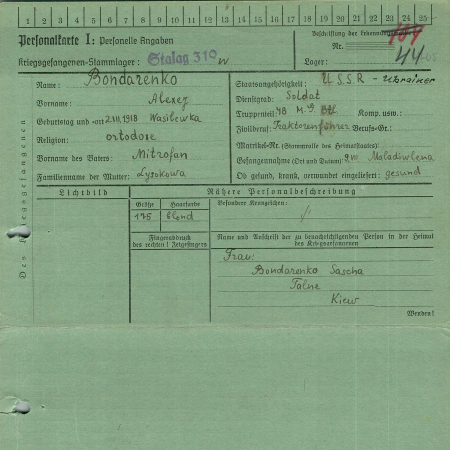 1 2 3 4 5 6 7 8 9 10 11 12 13 14 15 16 17 18 19 20 21 22 23 24 25
Personalkarte I: Personelle Angaben
Kriegsgefangenen-Stammlager: Stalag 310 W
Beschriftung der Erkennungsmarke
Nr.
Lager: 44
Des Kriegsgefangenen
Name: Bondarenko
Vorname: Alexej
Geburtstag und -ort 2.III.1918 Wasilewka
Religion: ortodox
Vorname des Vaters: Mitrofan
Familienname der Mutter: Lysokowa
Staatsangehörigkeit: U.S.S.R - Ukrainer
Dienstgrad: Soldat
Truppenteil: 48 M.S. Komp. usw.:
Zivilberuf: Traktorenführer Berufs-Gr.:
Matrikel-Nr. (Stammrolle des Heimatstaates)
Gefangennahme (Ort und Datum)
Ob gesund, krank, verwundet eingeliefert: gesund
Lichtbild
Nähere Personalbeschreibung
Größe Haarfarbe
175 blond
Besondere Kennzeichen:
Fingerabdruck
des rechten ! Zeigefingers
Name und Anschrift der zu benachrichtigenden Person in der Heimat
des Kriegsgefangenen
Frau:
Bondarenko Sascha
Talne
Kiew
Wenden!